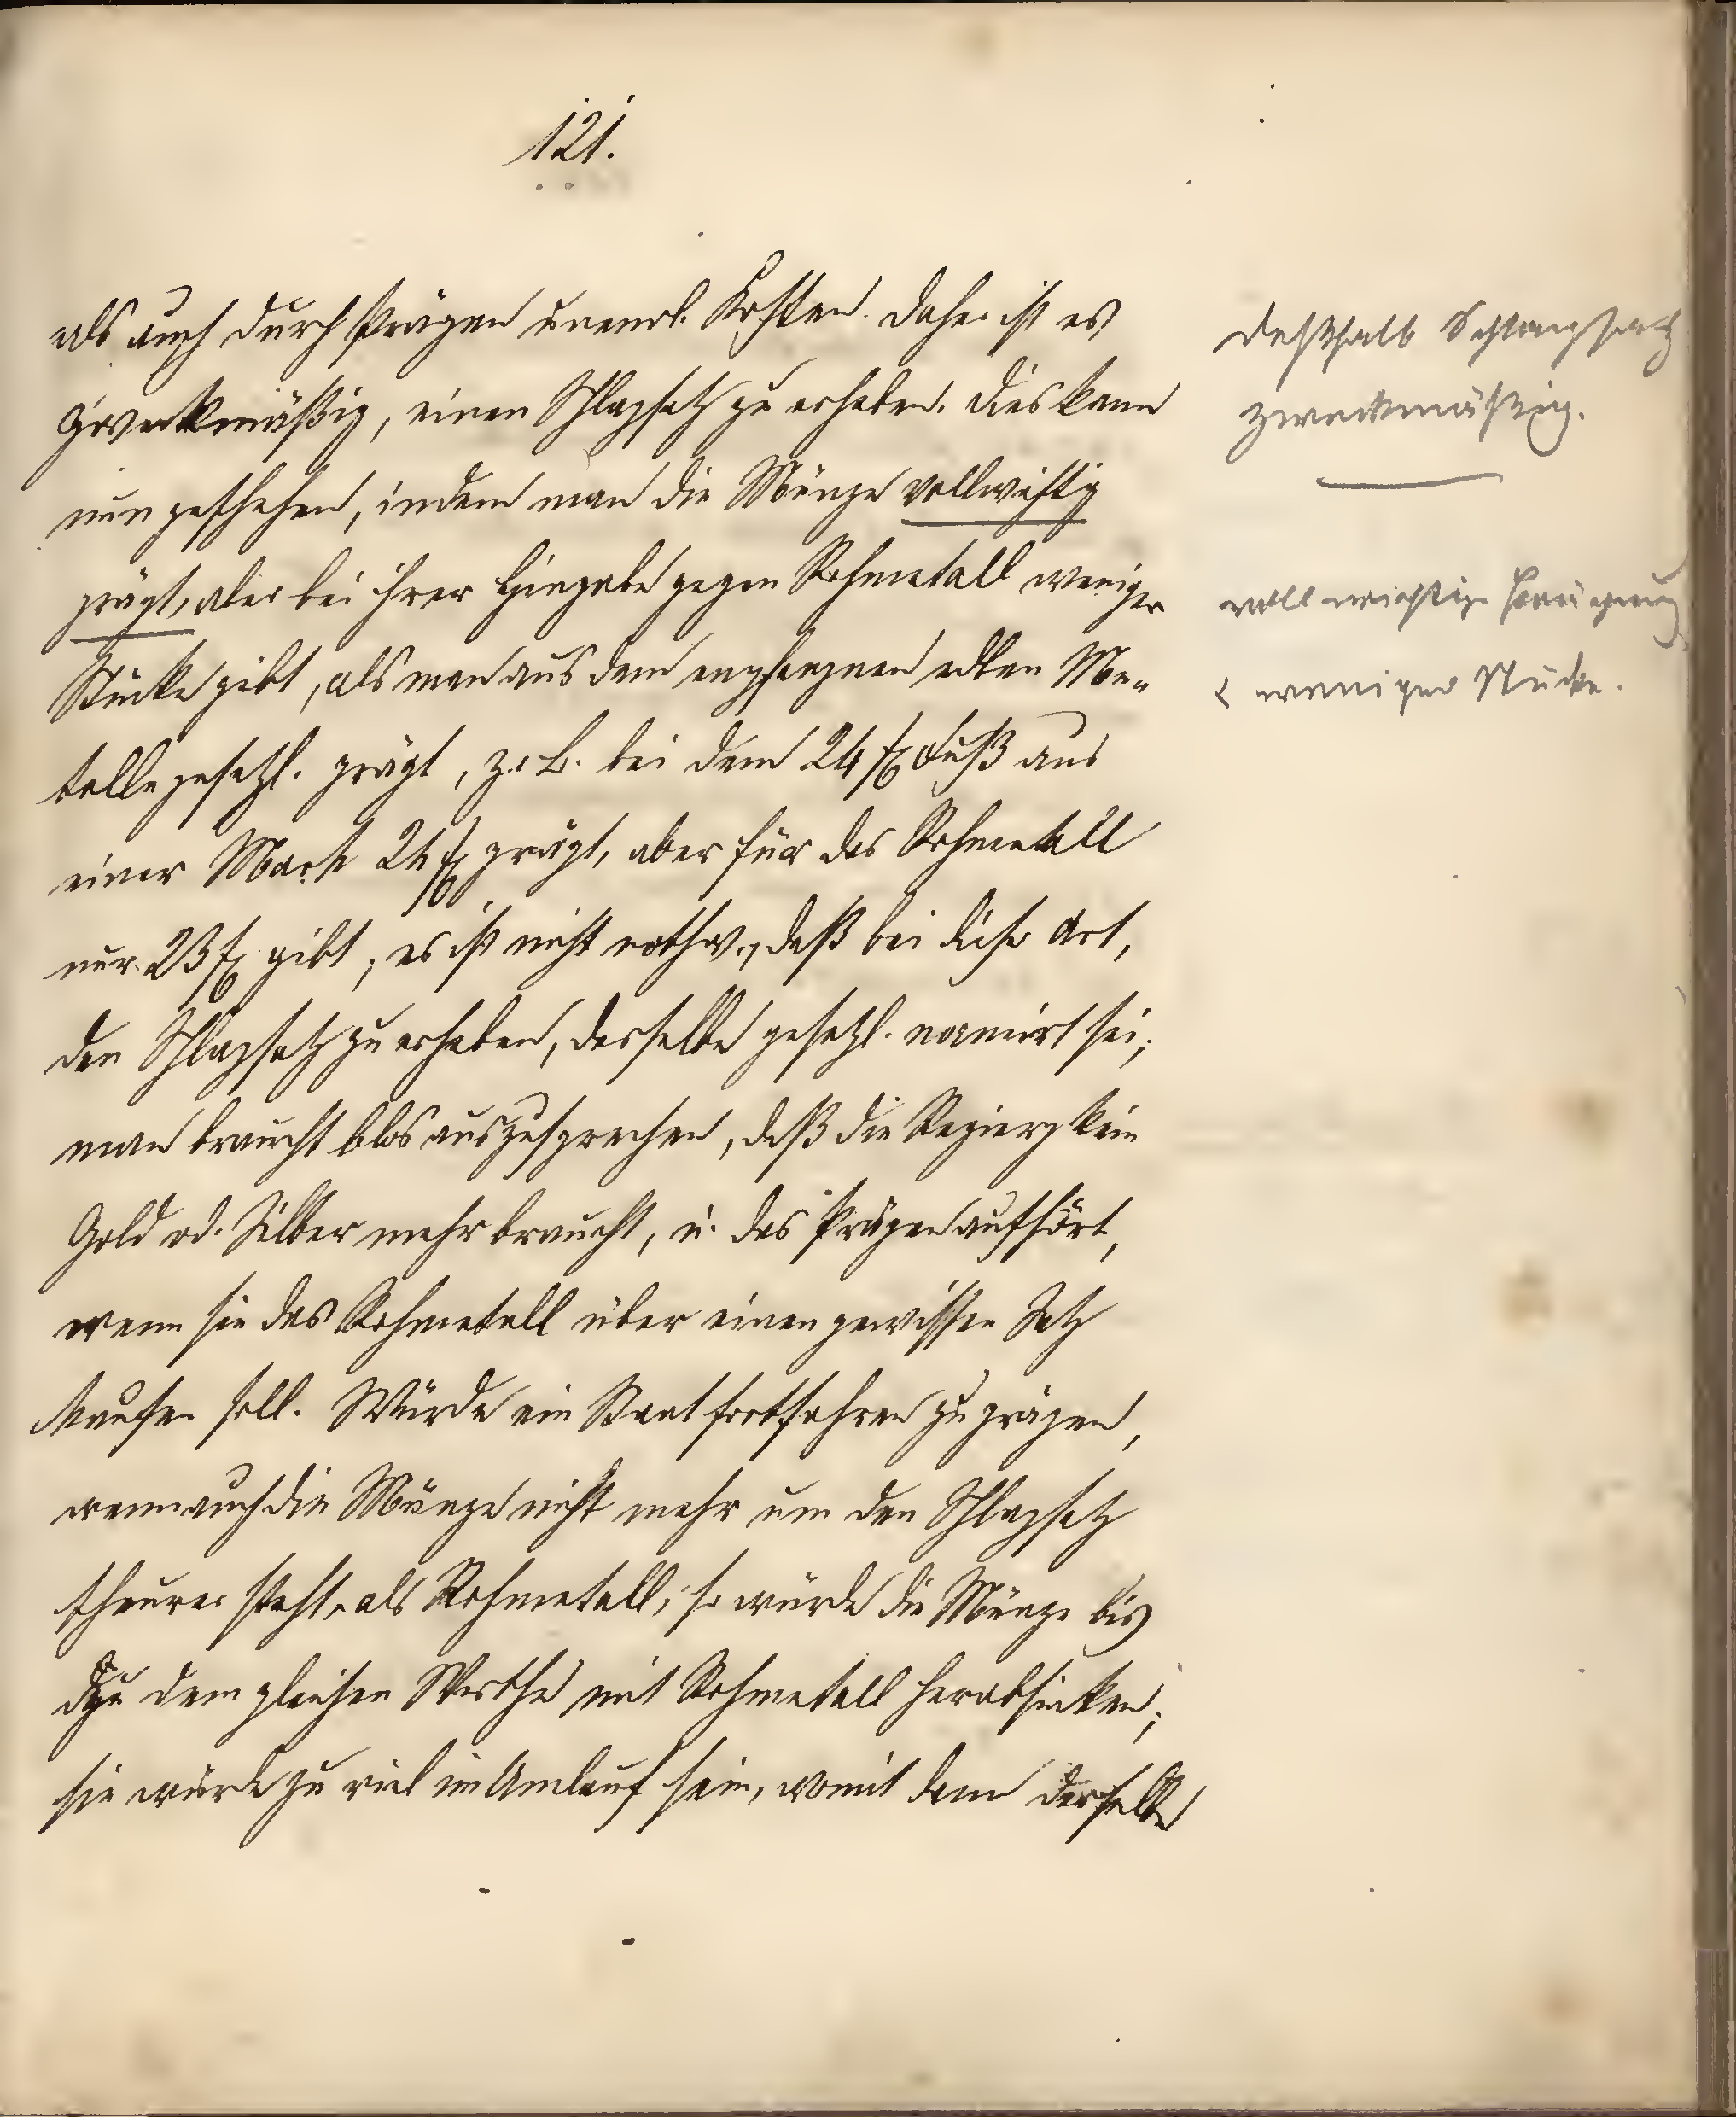 121.
als auch durch Prägen unendl. Kosten. Daher ist es
zweckmäßig, einen Schlagsatz zu erheben. Dies kann
nun geschehen, indem man die Münze vollwichtig
prägt, aber bei ihrer Hingabe gegen Rohmetall weniger
Stücke gibt, als man aus dem empfangnen edlen Me-
talle gesetzl. prägt, z. B. bei dem 24 fl Fuß aus
einer Mark 24 fl prägt, aber für das Rohmetall
nur 23 fl gibt; es ist nicht nothw., daß bei dieser Art,
den Schlagsatz zu erheben, derselbe gesetzl. normirt sei;
man braucht blos auszusprechen, daß die Regierg kein
Gold od. Silber mehr braucht, u. das Prägen aufhört,
wenn sie das Rohmetall über einen gewissen Satz
kaufen soll. Würde ein Staat fortfahren zu prägen,
wenn auch die Münze nicht mehr um den Schlagsatz
theurer steht, als Rohmetall, so würde die Münze bis
zu dem gleichen Werthe mit Rohmetall herabsinken;
sie würde zu viel im Umlauf sein, womit dann derselbe
Deßhalb Schlagsatz
zweckmäßig.
vollwichtige Prägung
& weniger Stücke.